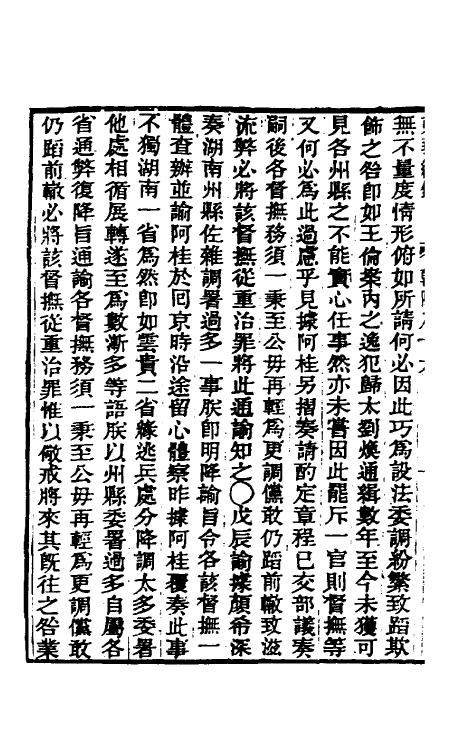 無不量度情形俯如所請何必因此巧爲設法委調紛繁致蹈欺
飾之咎卽如王倫案內之逸犯歸太劉煥通緝數年至今未獲可
見各州縣之不能實心任事然亦未嘗因此罷斥一官則督撫等
又何必爲此過慮乎見據阿桂另摺奏請酌定章程已交部議奏
嗣後各督撫務須一秉至公毋再輕爲更調儻敢仍蹈前轍致滋
流弊必將該督撫從重治罪將此通諭知之○戊辰諭據顏希深
奏湖南州縣佐雜調署過多一事朕卽明降諭旨令各該督撫一
體查辦並諭阿桂於囘京時沿途留心體察昨據阿桂覆奏此事
不獨湖南一省爲然卽如雲貴二省緣逃兵處分降調太多委署
他處相循展轉遂至爲數漸多等語朕以州縣委署過多自屬各
省通弊復降旨通諭各督撫務須一秉至公毋再輕爲更調儻敢
仍蹈前轍必將該督撫從重治罪惟以儆戒將來其旣往之咎業